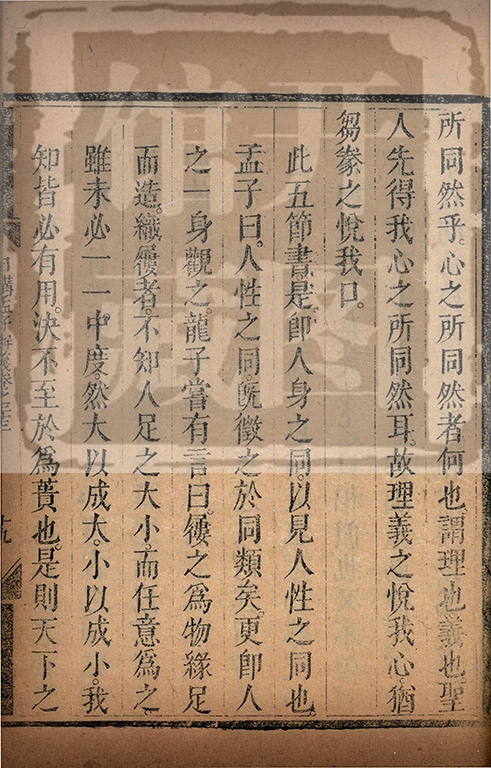 所同然乎。心之所同然者何也。謂理也。義也。聖
人先得我心之所同然耳。故理義之悅我心。猶
芻豢之悅我口。
此五節書是即人身之同。以見人性之同也。
孟子曰。人性之同。既徵之於同類矣。更即人
之一身觀之。龍子嘗有言曰。屨之為物緣足
而造。織屨者。不知人足之大小。而任意為之
雖未必一一中度。然大以成大。小以成小。我
知皆必有用。決不至於為蕢也。是則天下之